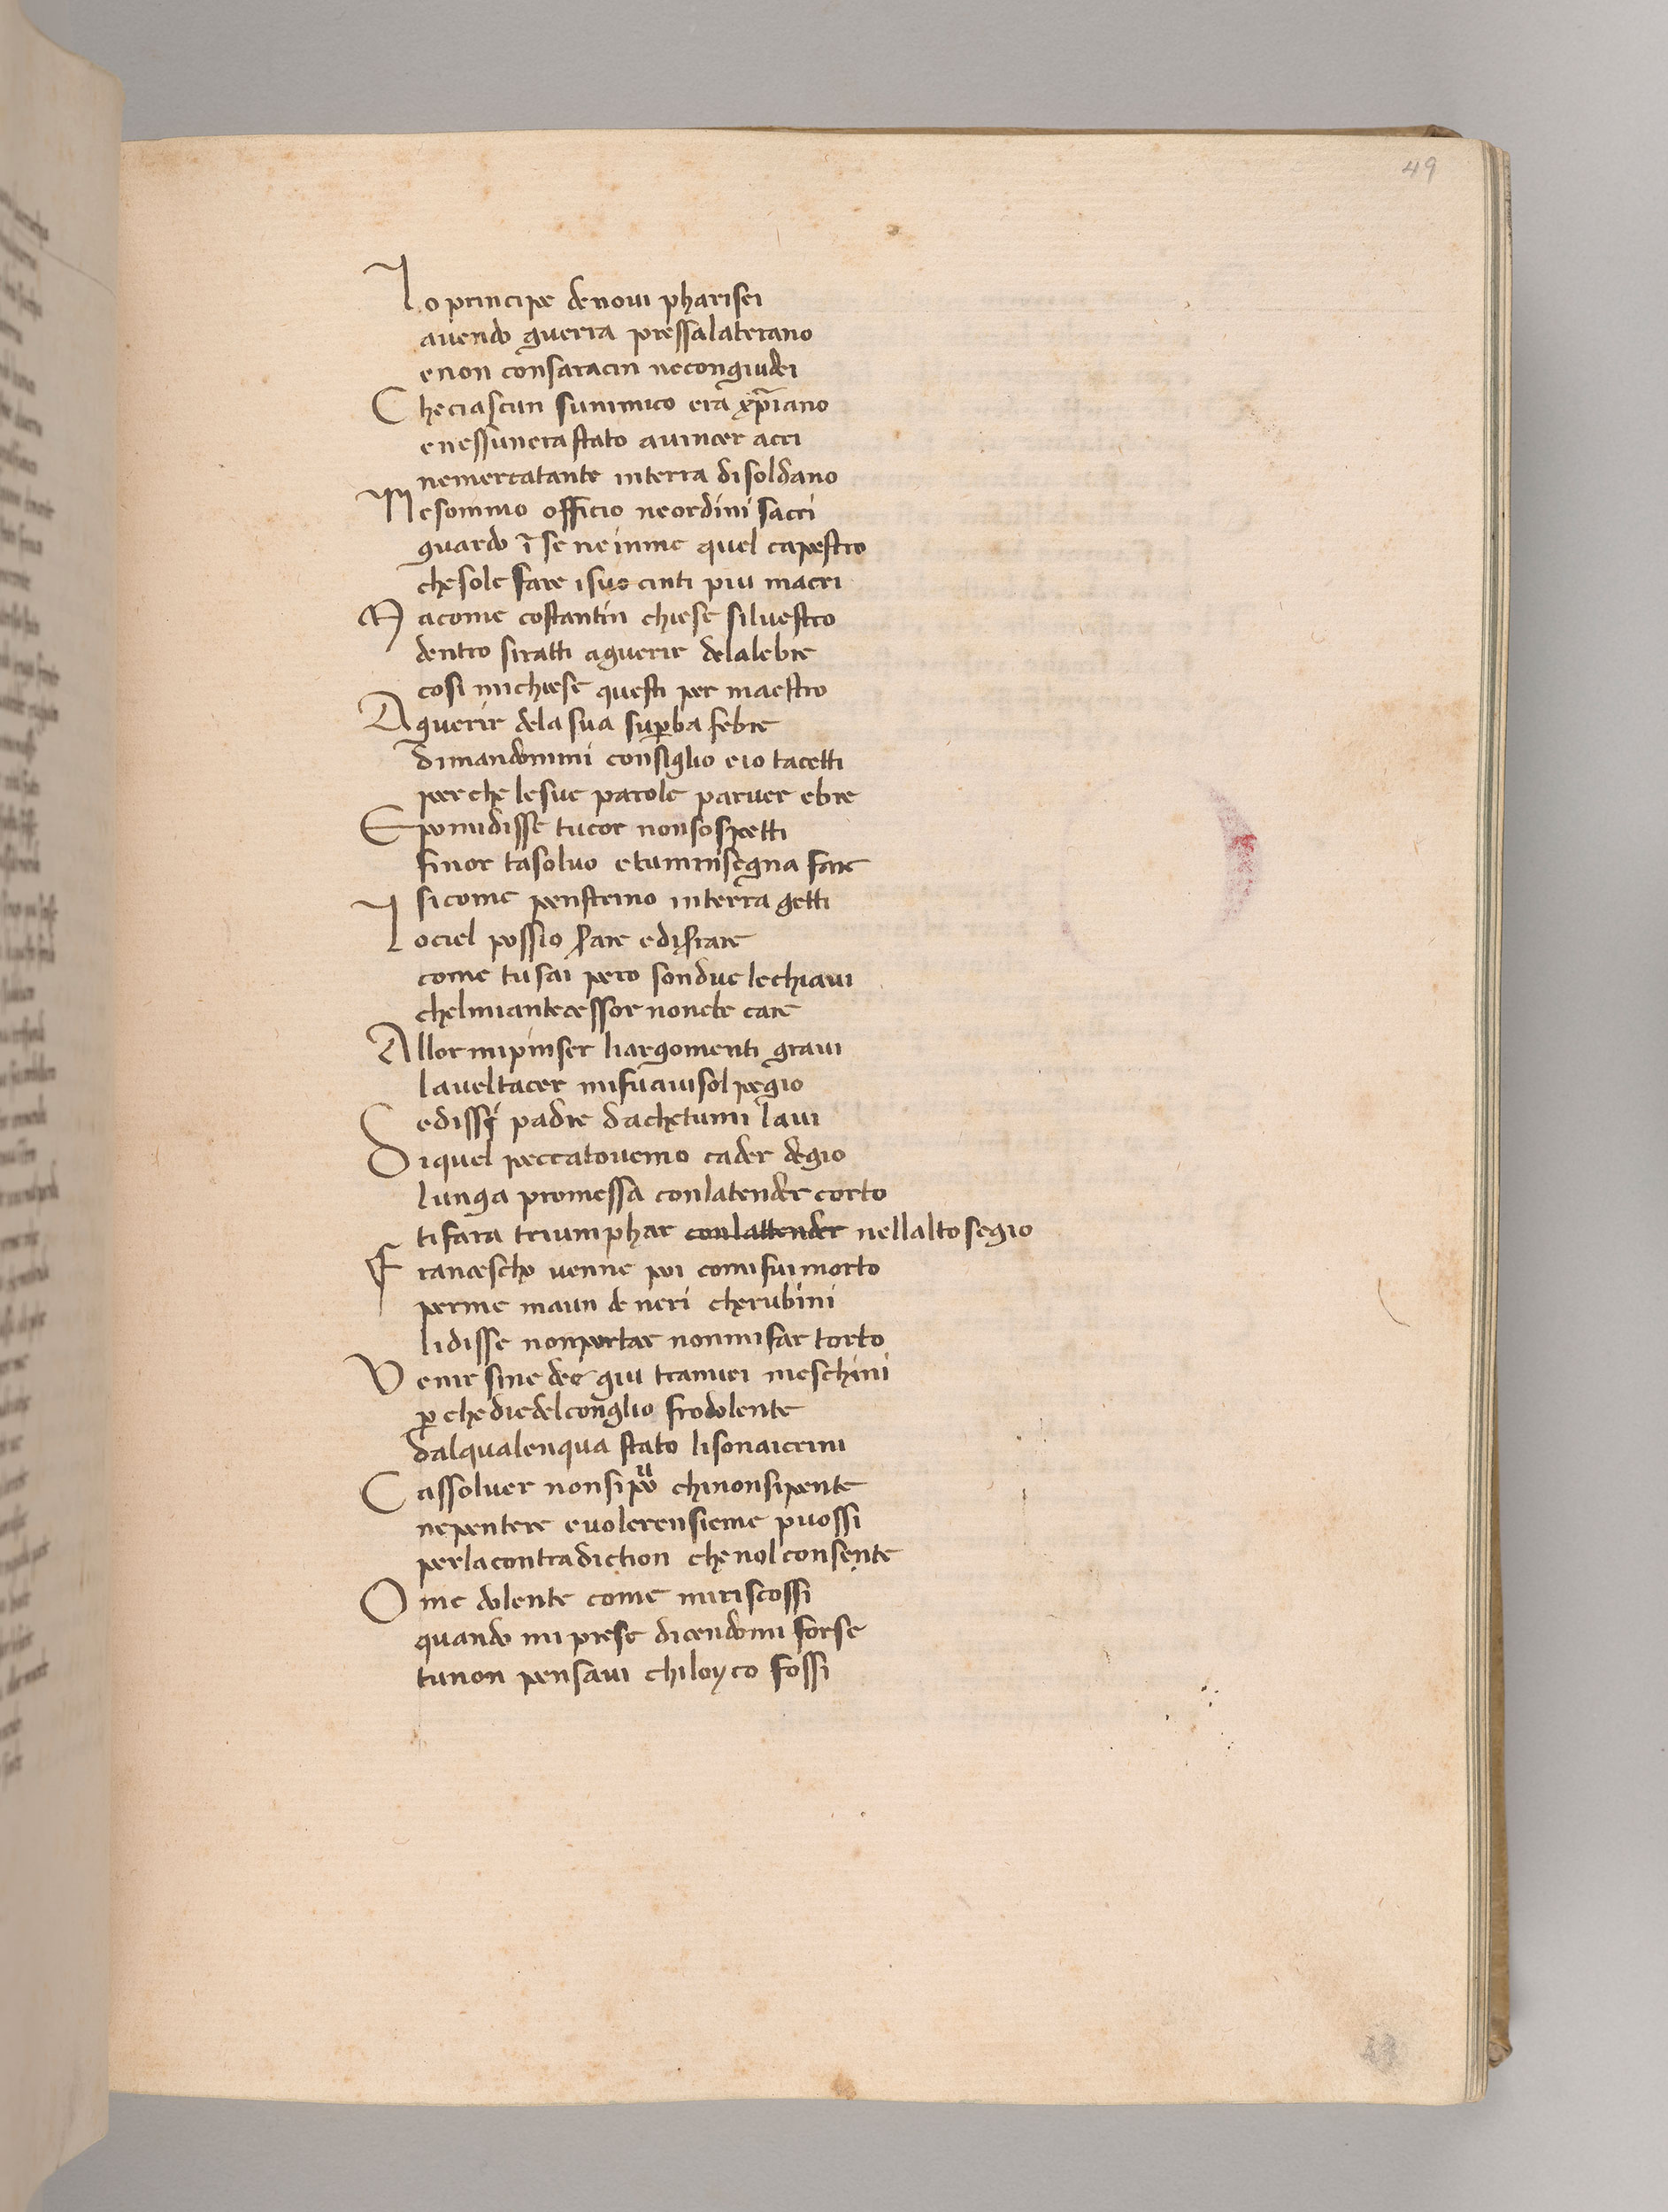 49
Lo principe denovi pharisei
avendo guerra pressalaterano
enon consaracin necongiudei
Checiascun sunimico era xp̄iano
enessunera stato avincer acri
nemercatante interra disoldano
Nesommo officio neordini sacri
guardo ī se neinme quel capestro
chesole fare isuo cinti piu macri
Macome costantin chiese silvestro
dentro siratti aguerir delalebre
cosi michiese questi per maestro
Aguerir dela sua suꝑba febre
dimandommi consiglio eio tacetti
perche lesue parole parver ebre
Epomidisse tucor nonsospetti
finor tasolvo etummisegna fare
sicome penstrino interra getti
Lociel possio s̄rare edisrare
come tusai pero sondue lechiavi
chelmiantecessor noncbe care
Allor mipinser liargomenti gravi
lavel tacer mifu avisol pegio
edissi padre dachetumi lavi
Diquel peccatovemo cader degio
lunga promessa conlatender corto
tifara triumphar conlattender nellalto segio
Francescho venne poi comifuimorto
perme maun de neri cherubini
lidisse nonportar nonmifar torto
Venir sine dee qui tramiei meschini
ꝑche diedelconsiglio frodolente
dalqualenqua stato lisonaicrini
Cassolver nonsi puo chinonsipente
nepentere evolerensieme puossi
perlacontradiction chenolconsente
Ome dolente come miriscossi
quando mi prese dicendomi forse
tunon pensavi chiloyco fossi